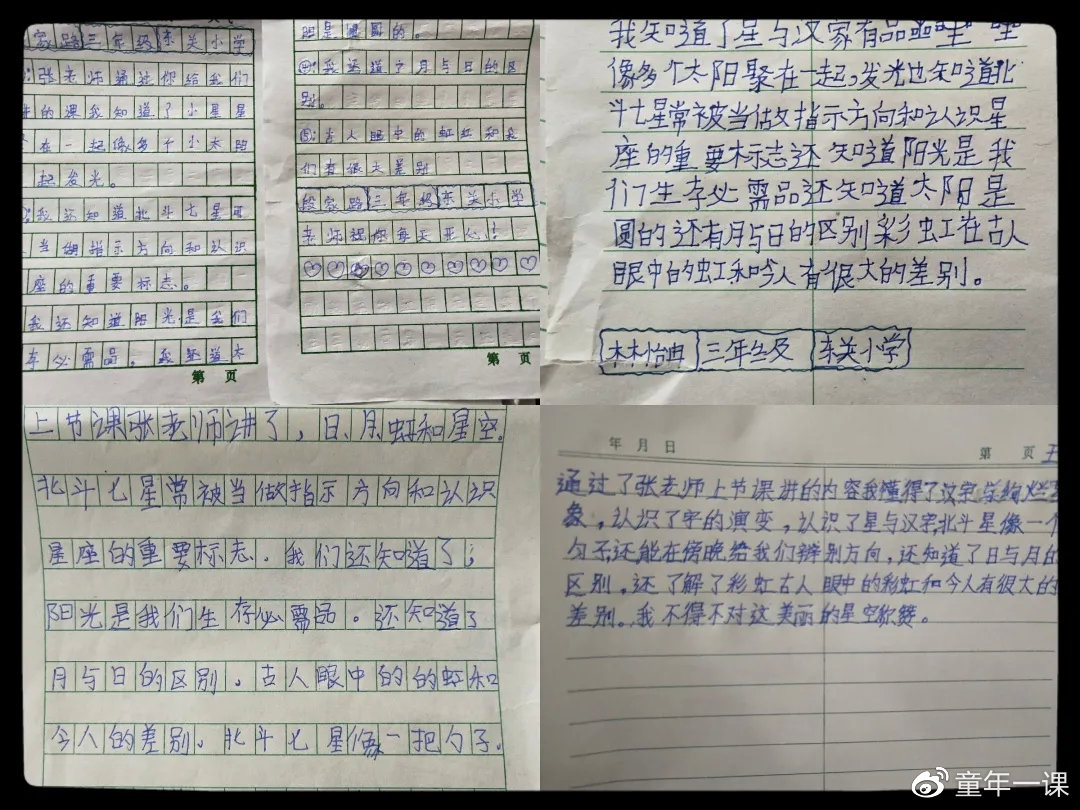 家路 三年级 东关小学
张老师通过你给我们
的课我知道了小星星
在一起像多个小太阳
起发光。
我还知道北斗七星可
当做指示方向和认识
座的重要标志。
我还知道阳光是我们
存必需品。我还道太
第 页
阳是
的。
④:我还道了月与日的区
别。
⑤:古人眼中的虹和我
们有很大差别
段家路 三年级 东关小学
老师祝你每天开心!
第 页
我知道了星与汉家有品
像多个太阳聚在一起,发光也知道北
斗七星常被当做指示方向和认识星
座的重要标志还知道阳光是我
们生存必需品还知道太阳是
圆的还有月与日的区别彩虹在古人
眼中的虹和今人有很大的差别。
林怡冉 三年级 东关小学
上节课张老师讲了,日、月、虹和星空。
北斗七星常被当做指示方向和认识
星座的重要标志。我们还知道了;
阳光是我们生存必需品。还知道了
月与日的区别。古人眼中的的虹和
今人的差别。北斗七星像一把勺子。
年 月 日
第 页
通过了张老师上节课讲的内容我懂得了汉字
象,认识了字的演变,认识了星与汉字,北斗星像一个
勺子还能在傍晚给我们辨别方向,还知道了日与月的
区别,还了解了彩虹古人眼中的彩虹和今人有很大的
差别。我不得不对这美丽的星空称赞。
童年一课